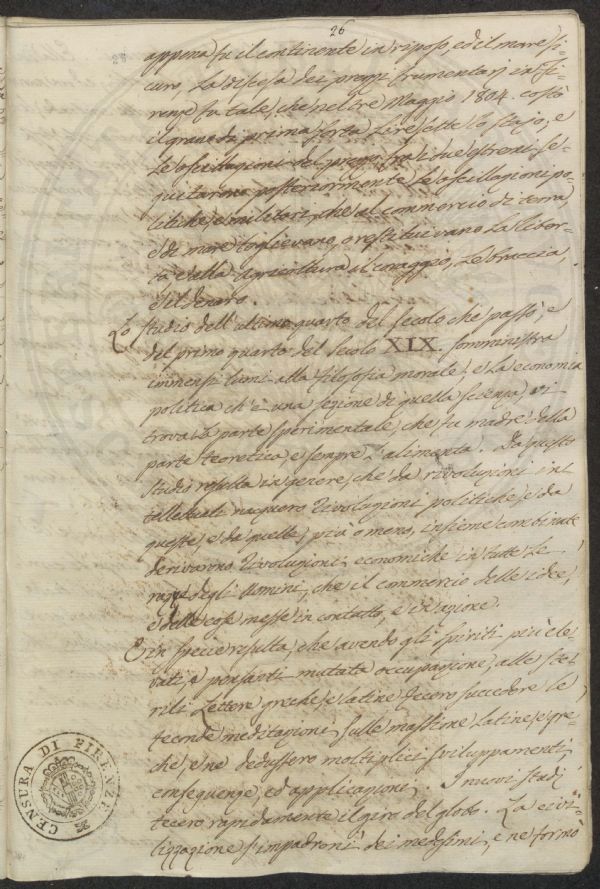 26
appena fu il continente in riposo, ed il mare si-
curo. La discesa dei prezzi frumentarj in Fi-
renze fu tale, che nel tre Maggio 1804. costò
il grano di prima sorta Lire sette lo stajo, e
le oscillazioni del prezzo fra i due estremi se-
guitarono posteriormente le oscillazioni po-
litiche, e militari, che al commercio di terra,
e di mare toglievano, o restituivano la liber-
tà e alla agricoltura il coraggio, le braccia,
e il denaro.
Lo studio dell'ultimo quarto del secolo che passò, e
del primo quarto del secolo XIX. somministra
immensi lumi alla filosofia morale, e la economia
politica ch'è una sezione di quella scienza, vi
trova la parte sperimentale, che fu madre della
parte teoretica e sempre l'alimenta. Da questo
studio resulta in genere, che da rivoluzioni int
tellettuali nacquero rivoluzioni politiche, e da
queste, e da quelle, più o meno, insieme combinate
derivarono rivoluzioni economiche in tutte le
razze degli Uomini, che il commercio delle idee,
e delle cose messe in contatto, e in azione.
E in specie resulta, che avendo gli spiriti più ele
vati, e pensanti mutata occupazione, alle ste-
rili Lettere greche, e latine fecero succedere le
feconde meditazioni sulle massime latine, e gre-
che, e ne dedussero moltiplici sviluppamenti,
conseguenze, ed applicazioni. I nuovi studj
fecero rapidamente il giro del globo. La civi-
lizzazione s'impadronì dei medesimi, e ne formò
CENSURA DI FIRENZE